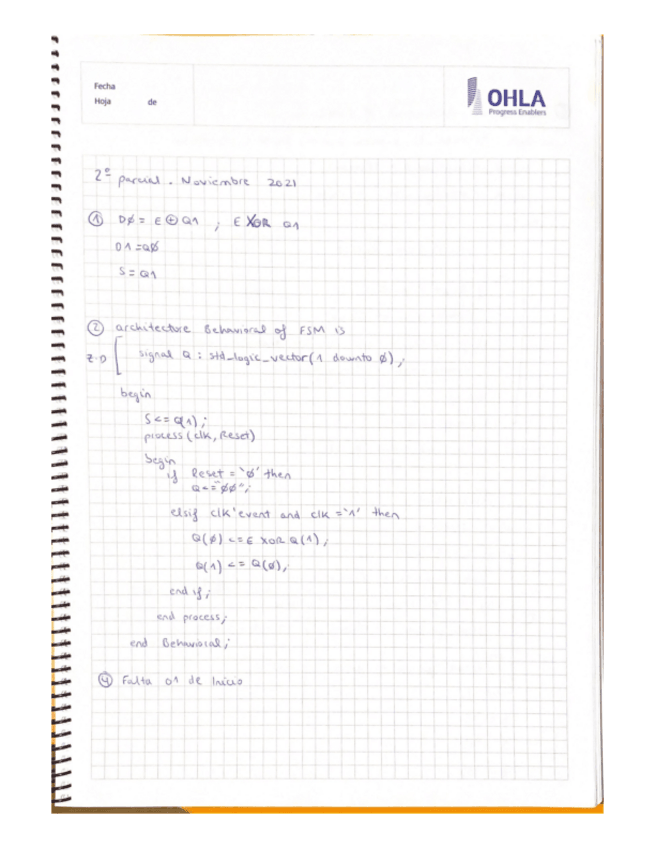 Fecha
Hoja de
OHLA
Progress Enablers
2º parcial. Noviembre 2021
① DØ = E ⊕ Q1 ; E XOR Q1
D1 = QØ
S = Q1
② architecture Behavioral of FSM is
signal Q : std_logic_vector(1 downto Ø);
begin
S <= Q(1);
process (clk, Reset)
begin
if Reset = 'Ø' then
Q <= "ØØ";
elsif clk'event and clk = '1' then
Q(Ø) <= E XOR Q(1);
Q(1) <= Q(Ø);
end if;
end process;
end Behavioral;
④ Falta 01 de Inicio